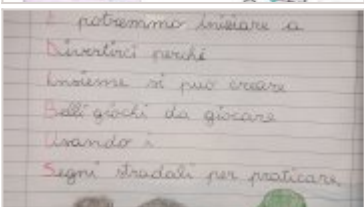 I potremmo iniziare a
Divertirci perché
Insieme si può creare
Belli giochi da giocare
Usando i
Segni stradali per praticare